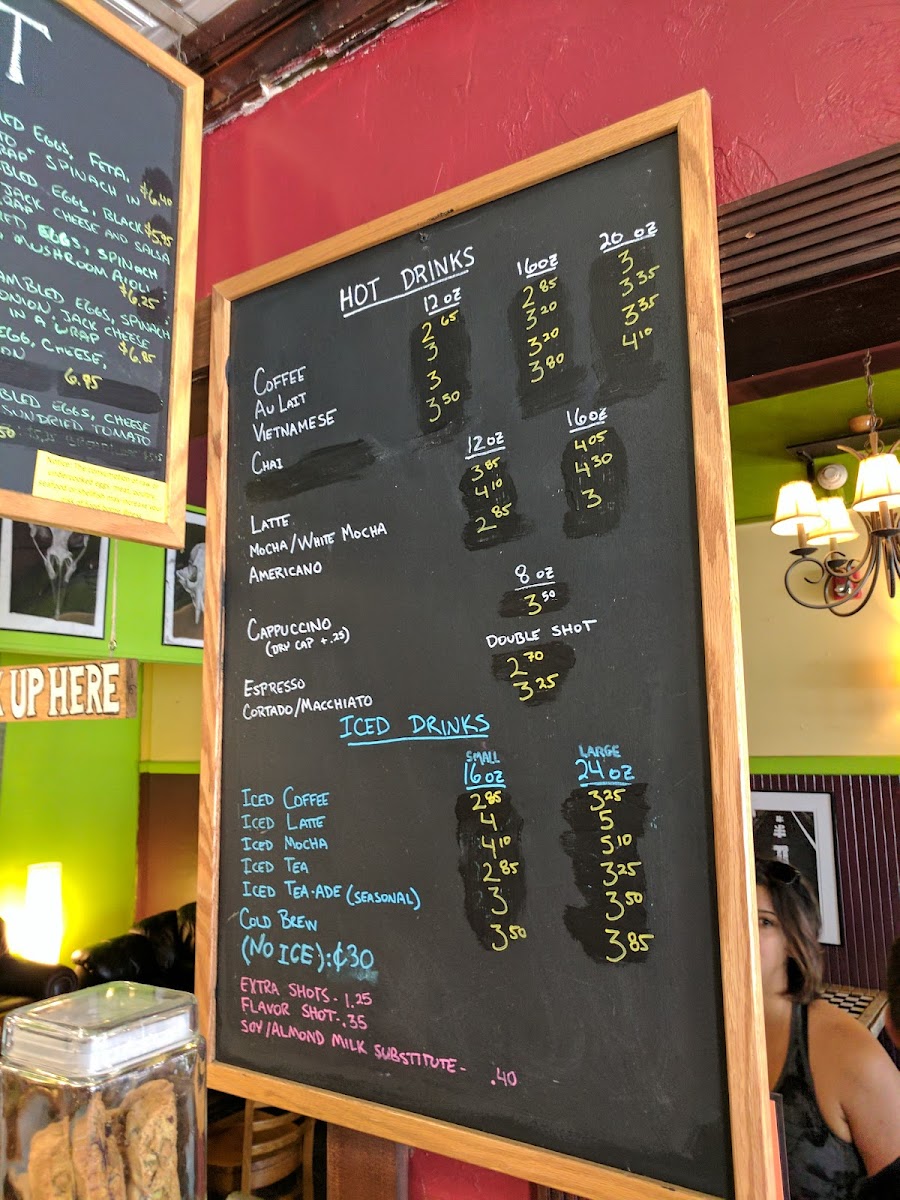 T
LED EGGS, FETA,
TO + SPINACH IN
RAP $6.40
BLED EGGS, BLACK
JACK CHEESE AND SALSA
RAP $5.95
EGGS, SPINACH
MUSHROOM AIOLI
$6.25
AMBLED EGGS, SPINACH
ONION, JACK CHEESE
IN A WRAP $6.85
EGG, CHEESE,
ON
6.95
BLED EGGS, CHEESE
SUNDRIED TOMATO
50
Notice: The consumption of raw or
undercooked eggs, meat, poultry,
seafood or shellfish may increase your
risk of food borne illness.
K UP HERE
HOT DRINKS
12 OZ 16 OZ 20 OZ
COFFEE 2 65 2 85 3
AU LAIT 3 3 20 3 35
VIETNAMESE 3 3 20 3 35
CHAI 3 50 3 80 4 10
12 OZ 16 OZ
LATTE 3 85 4 05
MOCHA/WHITE MOCHA 4 10 4 30
AMERICANO 2 85 3
8 OZ
CAPPUCCINO 3 50
(DRY CAP + .25)
DOUBLE SHOT
ESPRESSO 2 70
CORTADO/MACCHIATO 3 25
ICED DRINKS
SMALL LARGE
16 OZ 24 OZ
ICED COFFEE 2 85 3 25
ICED LATTE 4 5
ICED MOCHA 4 10 5 10
ICED TEA 2 85 3 25
ICED TEA-ADE (SEASONAL) 3 3 50
COLD BREW 3 50 3 85
(NO ICE):¢30
EXTRA SHOTS - 1.25
FLAVOR SHOT - .35
SOY/ALMOND MILK SUBSTITUTE - .40